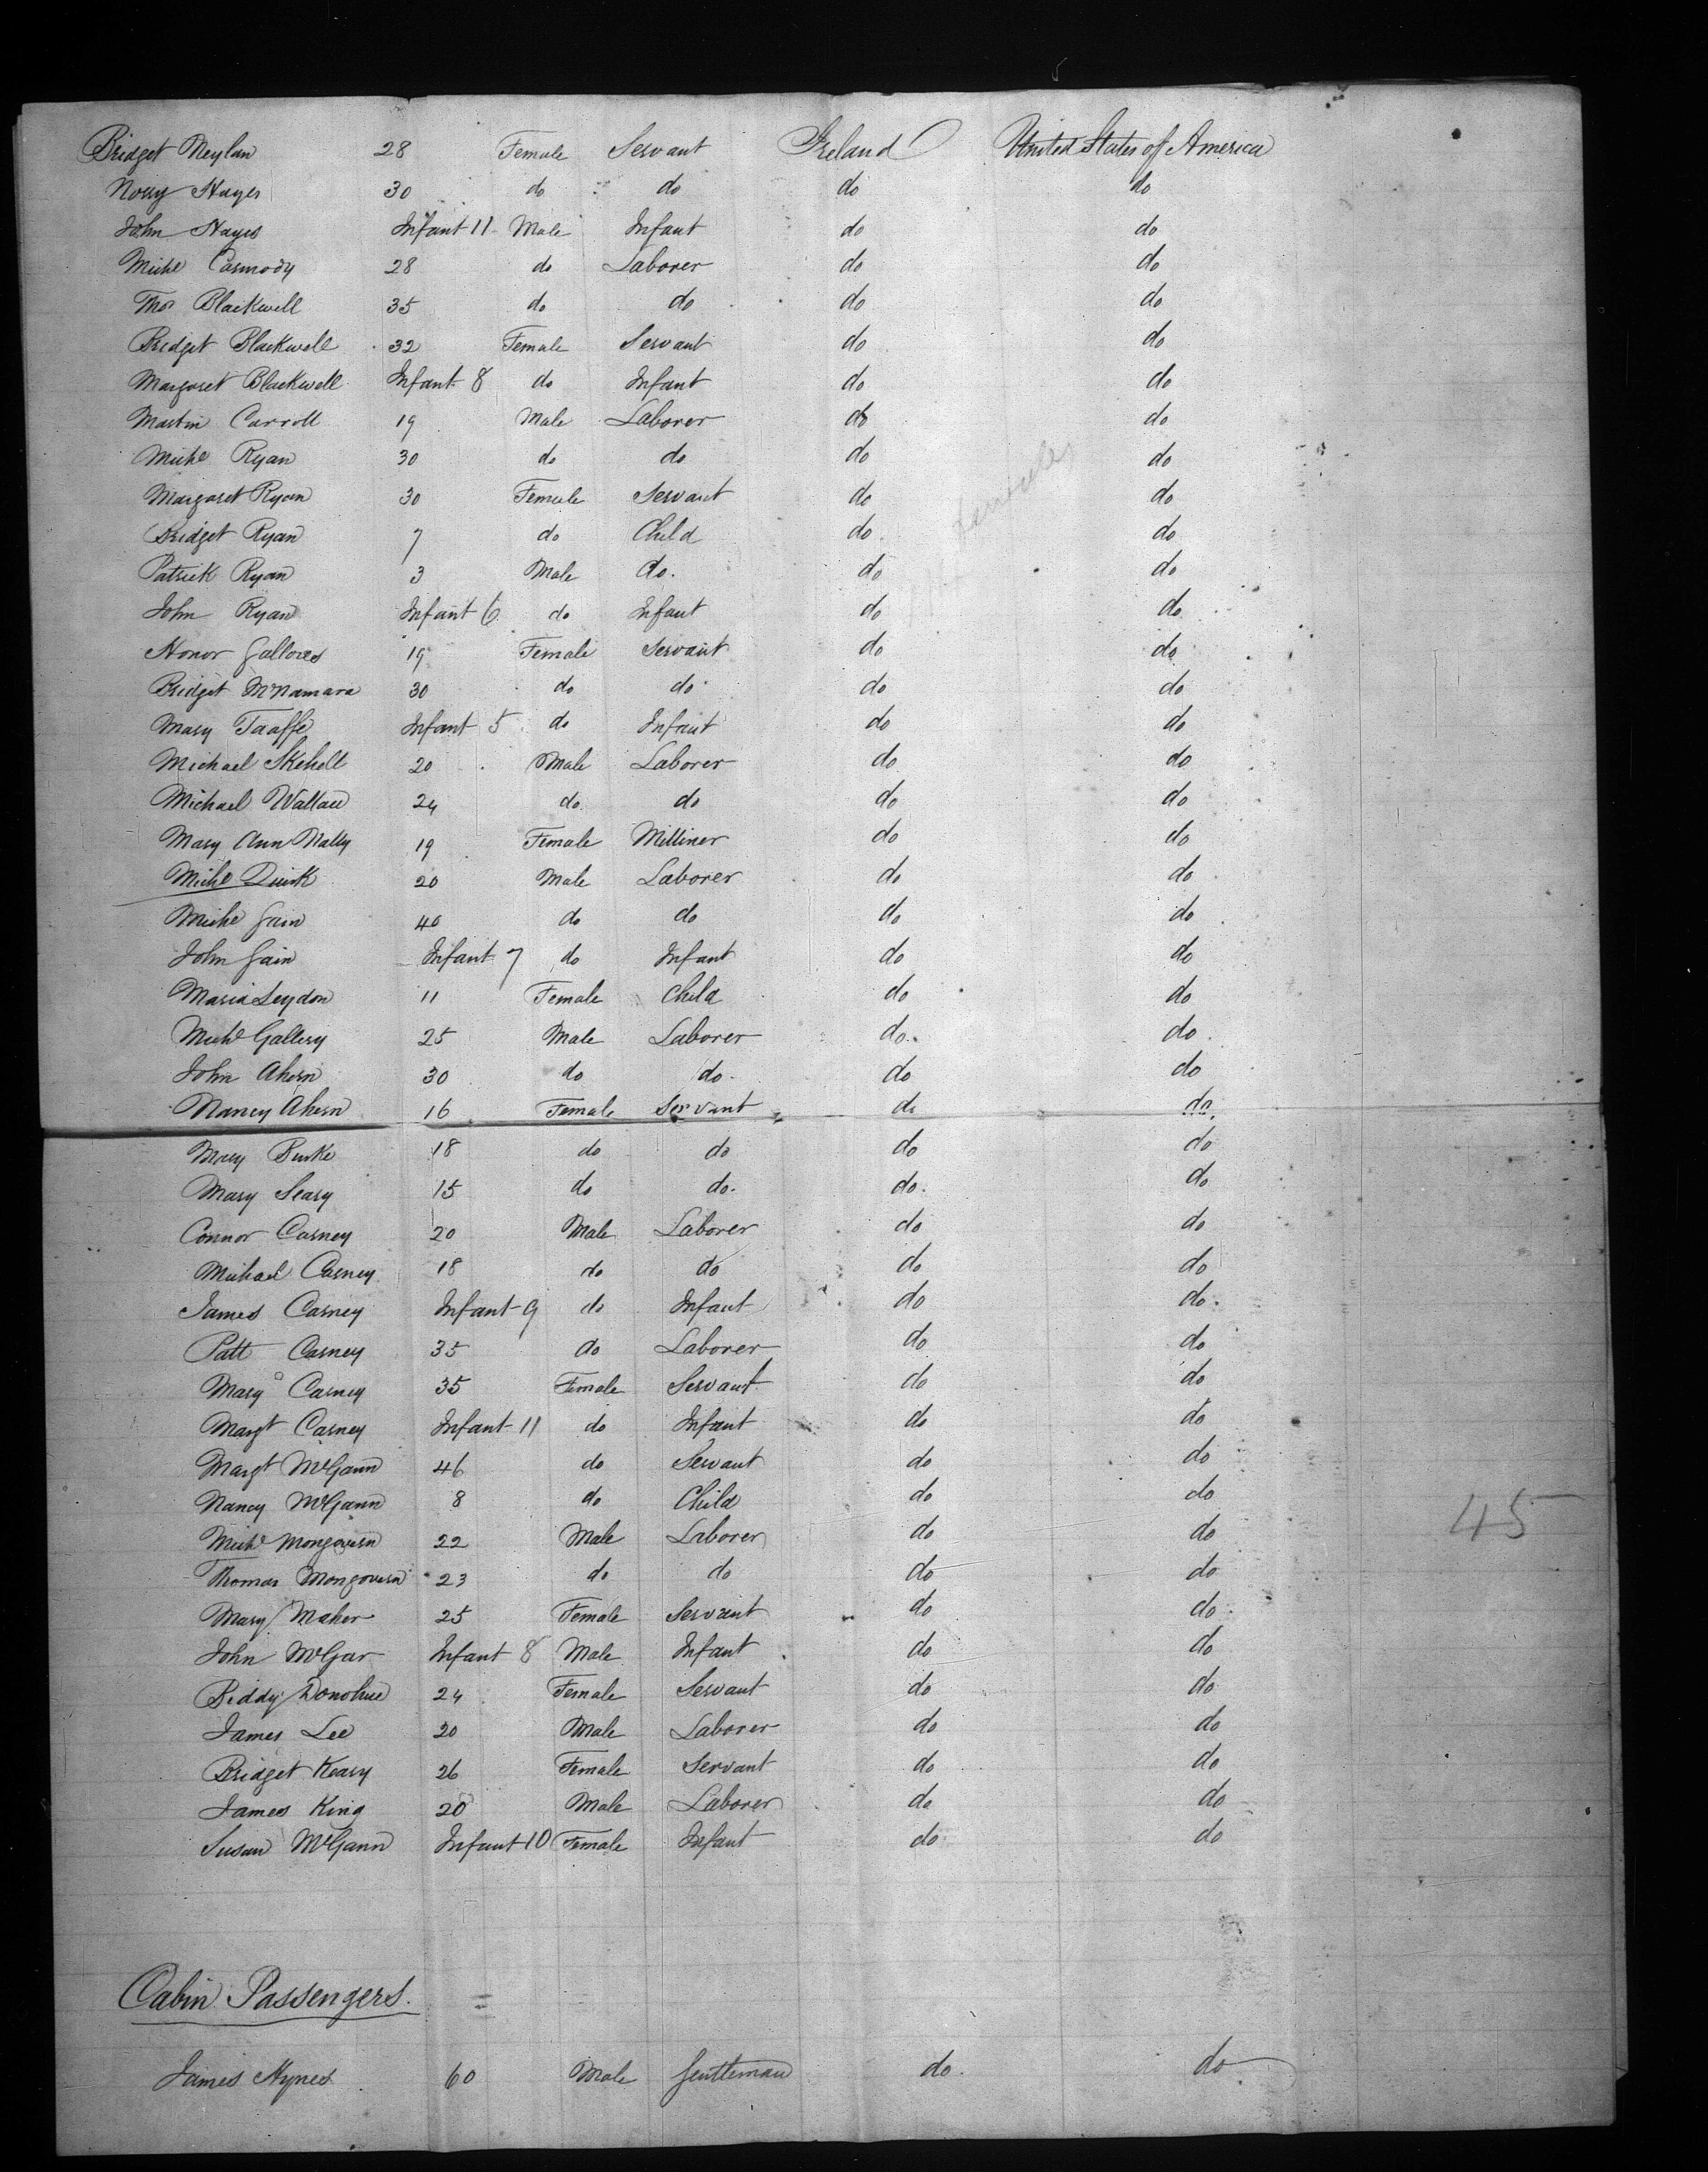 Bridget Neylan 28 Female Servant Ireland United States of America
Nory Hayes 30 do do do do
John Hayes Infant 11 Male Infant do do
Michl Carmody 28 do Laborer do do
Thos Blackwell 35 do do do do
Bridget Blackwell 32 Female Servant do do
Margaret Blackwell Infant 8 do Infant do do
Martin Carroll 19 Male Laborer do do
Michl Ryan 30 do do do do
Margaret Ryan 30 Female Servant do do
Bridget Ryan 7 do Child do do
Patrick Ryan 3 Male do. do do
John Ryan Infant 6 do Infant do do
Honor 19 Female Servant do do
Bridget McNamara 30 do do do do
Mary Taaffe Infant 5 do Infant do do
Michael Skehell 20 Male Laborer do do
Michael Wallace 24 do do do do
Mary Ann Nally 19 Female Milliner do do
Michl Quirk 20 Male Laborer do do
Michl Gain 40 do do do do
John Gain Infant 7 do Infant do do
Maria Leydon 11 Female Child do do
Michl Gallery 25 Male Laborer do do
John Ahern 30 do do do do
Nancy Ahern 16 Female Servant do do
Mary Burke 18 do do do do
Mary Leary 15 do do do do
Connor Carney 20 Male Laborer do do
Michael Carney 18 do do do do
James Carney Infant 9 do Infant do do
Patt Carney 35 do Laborer do do
Mary Carney 35 Female Servant do do
Margt Carney Infant 11 do Infant do do
Margt McGann 46 do Servant do do
Nancy McGann 8 do Child do do
Michl Mongovern 22 Male Laborer do do
45
Thomas Mongovern 23 do do do do
Mary Maher 25 Female Servant do do
John McGar Infant 8 Male Infant do do
Biddy Donohue 24 Female Servant do do
James Lee 20 Male Laborer do do
Bridget Keary 26 Female Servant do do
James King 20 Male Laborer do do
Susan McGann Infant 10 Female Infant do do
Cabin Passengers.
James Hynes 60 Male Gentleman do do